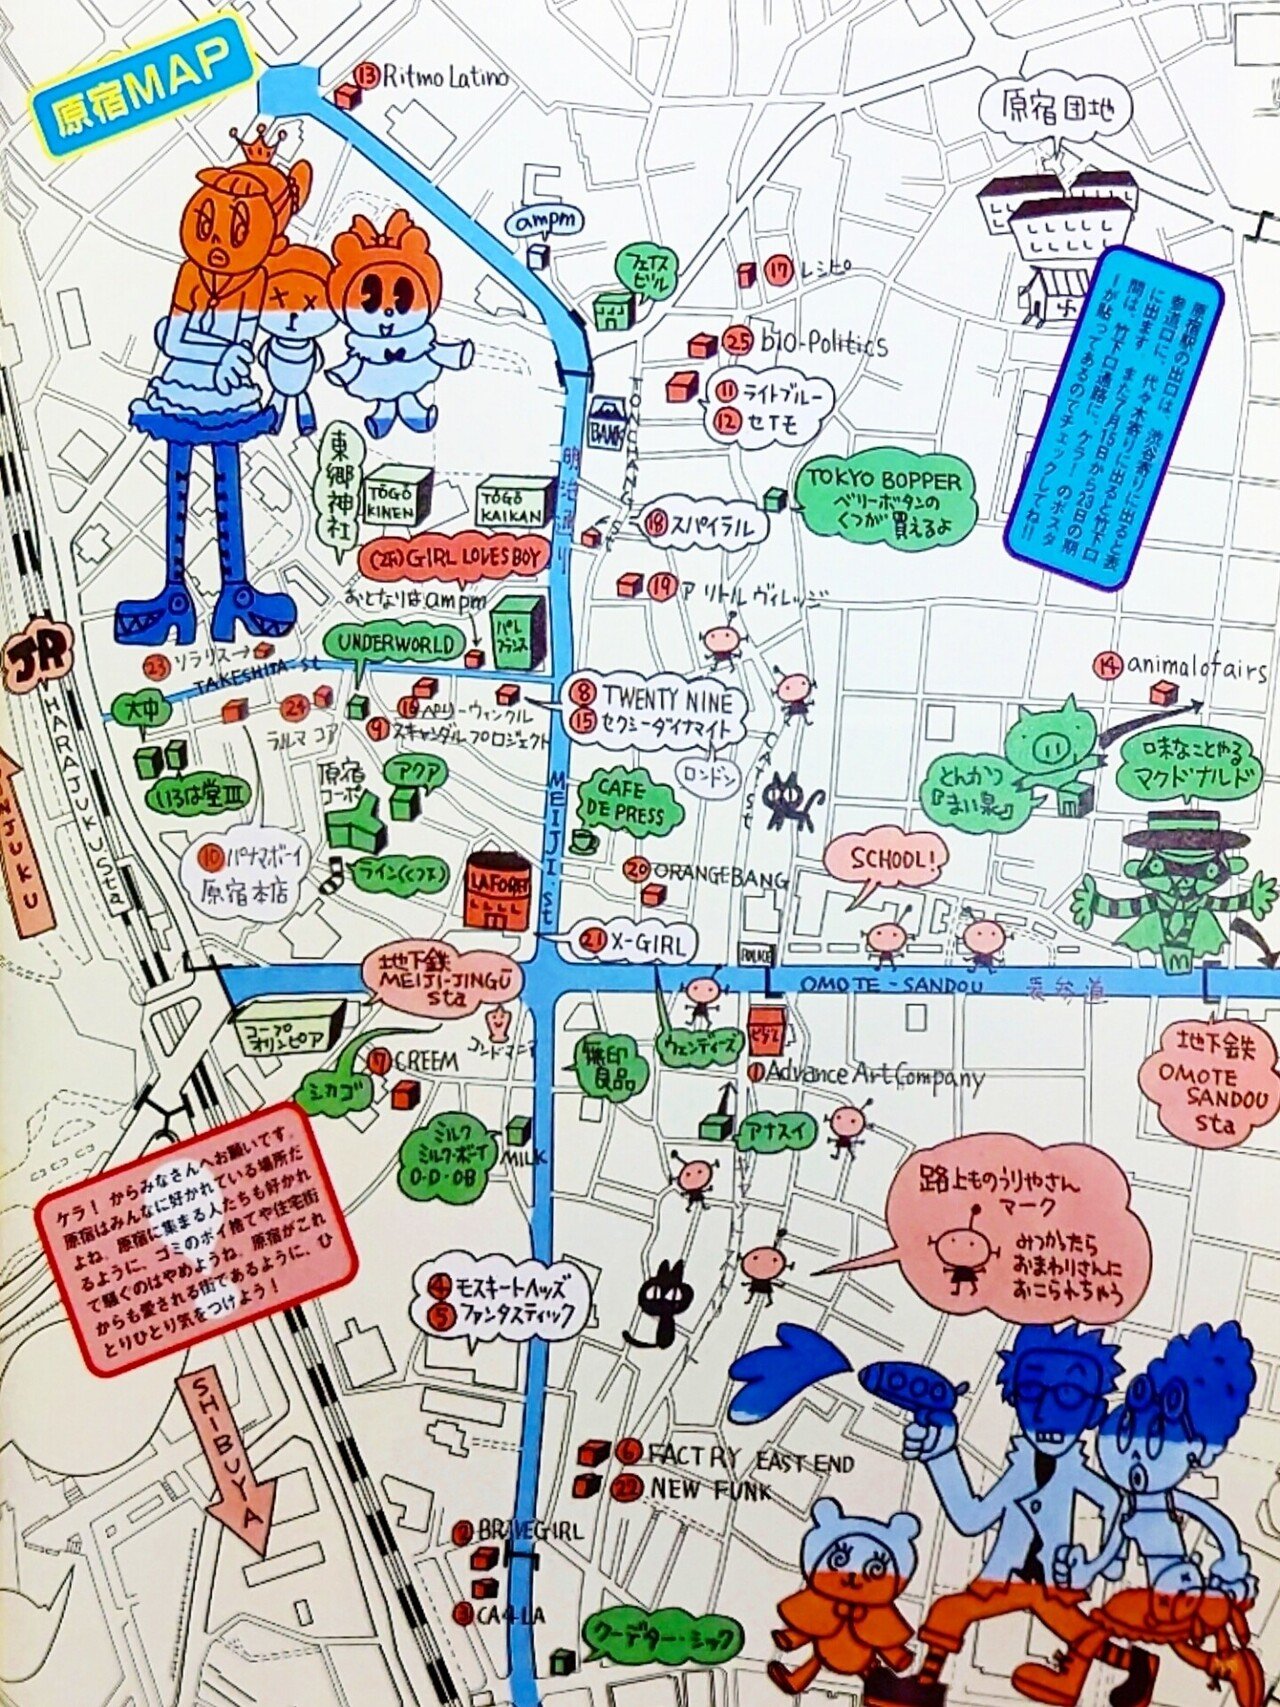 原宿MAP
⑬Ritmo Latino
原宿団地
ampm
フェイス
ビル
⑰レシピ
㉕bio-Politics
⑪ライトブルー
⑫セTモ
BANK
TONCHANG st
明治通り
原宿駅の出口は、渋谷寄りに出ると表
参道口に、代々木寄りに出ると竹下口
に出ます。また7月15日から23日の期
間は、竹下口通路に、ケラ!のポスタ
ーが貼ってあるのでチェックしてね!!
東郷神社
TŌGŌ
KINEN
TŌGŌ
KAIKAN
TOKYO BOPPER
ベリーボタンの
くつが買えるよ
⑱スパイラル
(2F)GIRL LOVES BOY
おとなりはampm
⑲ア リトル ヴィレッジ
パレ
フランス
UNDERWORLD
JR
HARAJUKU Sta
㉓ソラリス→
TAKESHITA-st
⑭animalofairs
大中
㉔
ラルマ コア
⑯ペリーウィンクル
⑨スキャンダルプロジェクト
⑧TWENTY NINE
⑮セクシーダイナマイト
ロンドン
CAT st
いろは堂III
原宿
コーポ
アクア
CAFE
DE PRESS
とんかつ
『まい泉』
味なことやる
マクドナルド
MEIJI-st
⑩パナマボーイ
原宿本店
ライン(くつ下)
LAFORET
⑳ORANGEBANG
SCHOOL!
㉑X-GIRL
POLICE
地下鉄
MEIJI-JINGŪ
sta
OMOTE-SANDOU 表参道
コープ
オリンピア
コンドマニア
シカゴ
⑦CREEM
無印
良品
ウェンディーズ
ビブレ
①Advance Art Company
地下鉄
OMOTE
SANDOU
sta
アナスイ
ミルク
ミルク・ボーイ
O・D・OB
MILK
路上ものうりやさん
マーク
みつかったら
おまわりさんに
おこられちゃう
ケラ!からみなさんへお願いです。
原宿はみんなに好かれている場所だ
よね。原宿に集まる人たちも好かれ
るように、ゴミのポイ捨てや住宅街
で騒ぐのはやめようね。原宿がこれ
からも愛される街であるように、ひ
とりひとり気をつけよう!
④モスキートヘッズ
⑤ファンタスティック
SHIBUYA
⑥FACTRY EAST END
㉒NEW FUNK
②BRAVEGIRL
③CA4LA
クーデター・シック